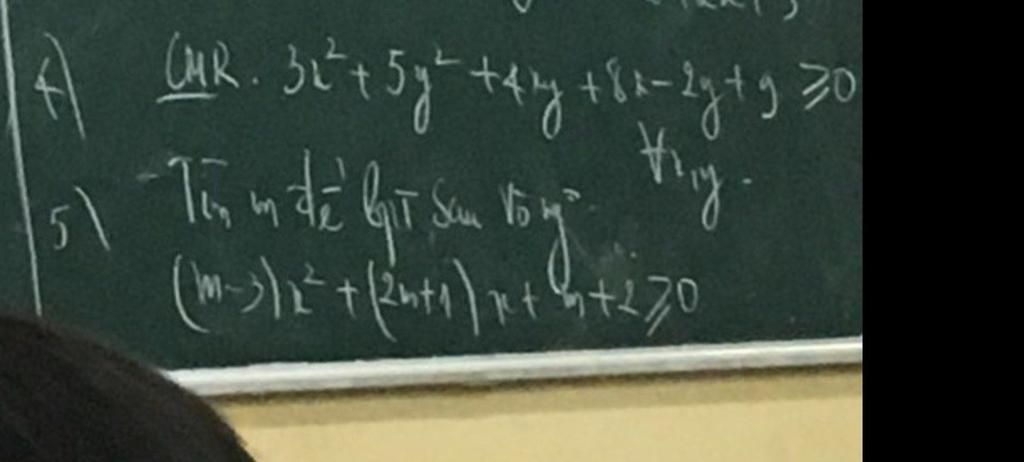 4) CMR. 3x² + 5y² + 4xy + 8x - 2y + 9 ≥ 0
∀x,y.
5) Tìm m để bpt sau vô ng⁰.
(m-3)x² + (2m+1)x + m+2 ≥ 0